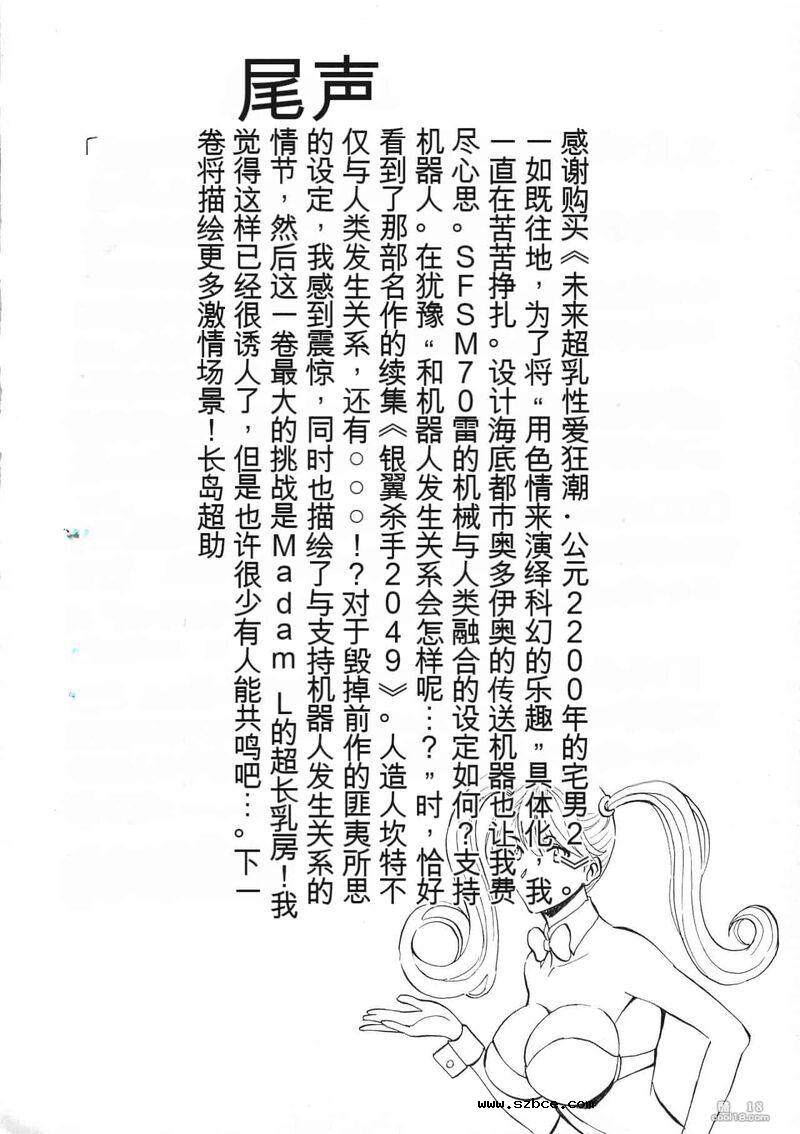 尾声
感谢购买《未来超乳性爱狂潮·公元2200年的宅男2。
一如既往地，为了将“用色情来演绎科幻的乐趣”具体化，我
一直在苦苦挣扎。设计海底都市奥多伊奥的传送机器也让我费
尽心思。SFSM70雷的机械与人类融合的设定如何？支持
机器人。在犹豫“和机器人发生关系会怎样呢…？”时，恰好
看到了那部名作的续集《银翼杀手2049》。人造人坎特不
仅与人类发生关系，还有○○○！？对于毁掉前作的匪夷所思
的设定，我感到震惊，同时也描绘了与支持机器人发生关系的
情节，然后这一卷最大的挑战是Madam L的超长乳房！我
觉得这样已经很诱人了，但是也许很少有人能共鸣吧…。下一
卷将描绘更多激情场景！长岛超助
www.szbce.com
18
cool18.com